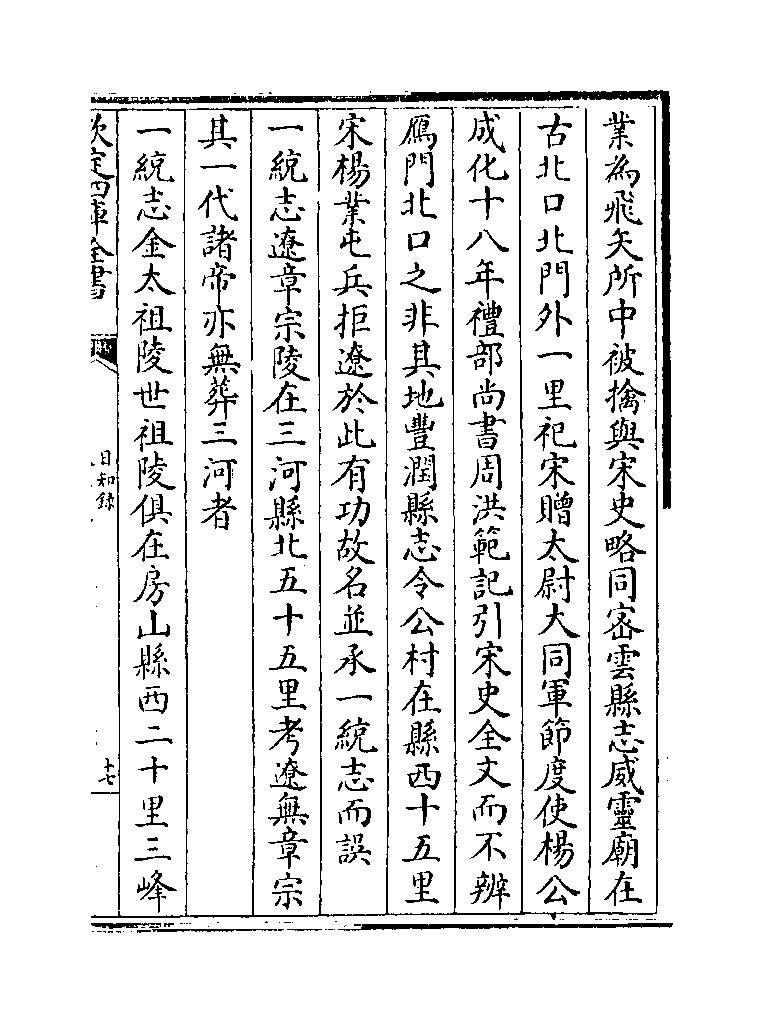 業為飛矢所中被擒與宋史略同密雲縣志威靈廟在
古北口北門外一里祀宋贈太尉大同軍節度使楊公
成化十八年禮部尚書周洪範記引宋史全文而不辨
鴈門北口之非其地豐潤縣志令公村在縣西十五里
宋楊業屯兵拒遼於此有功故名並承一統志而誤
一統志遼章宗陵在三河縣北五十五里考遼無章宗
其一代諸帝亦無葬三河者
一統志金太祖陵世祖陵俱在房山縣西二十里三峰
欽定四庫全書
日知錄
十七